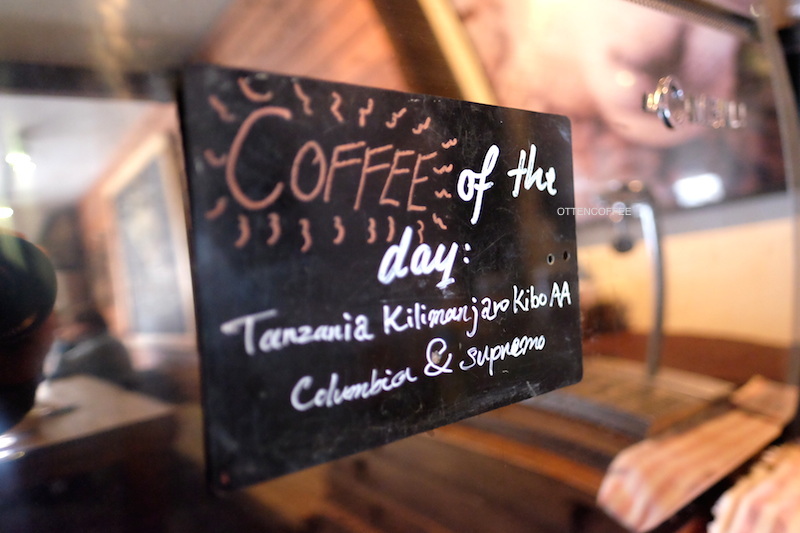 COFFEE of the
day:
Tanzania Kilimanjaro Kibo AA
Columbia & supremo
OTTENCOFFEE